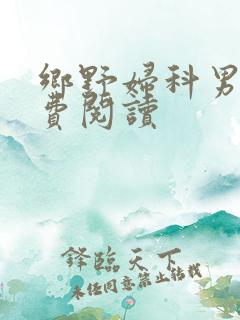 鄉野婦科男
費閱讀
鋒臨天下
未任同意禁止转载